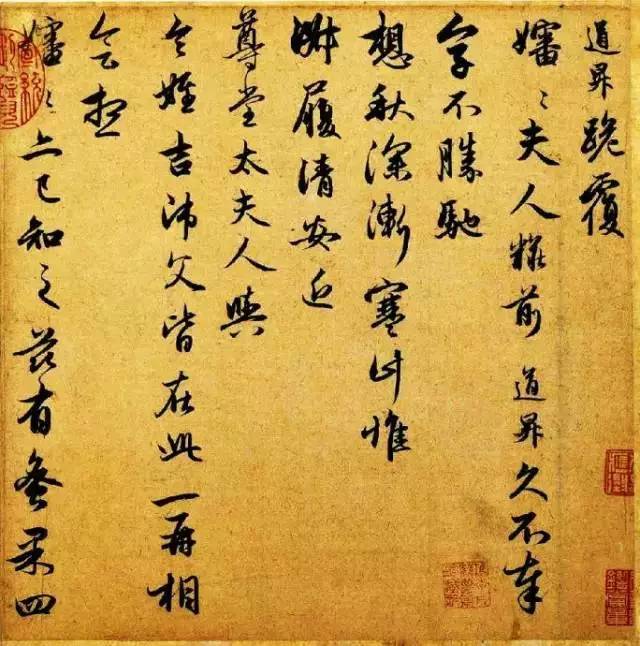 道昇跪覆
嬸〻夫人粧前 道昇久不奉
字不勝馳
想秋深漸寒計惟
淑履清安近
尊堂太夫人與
令姪吉沛父皆在此一再相
會想
嬸〻亦已知之茲有蜜果四